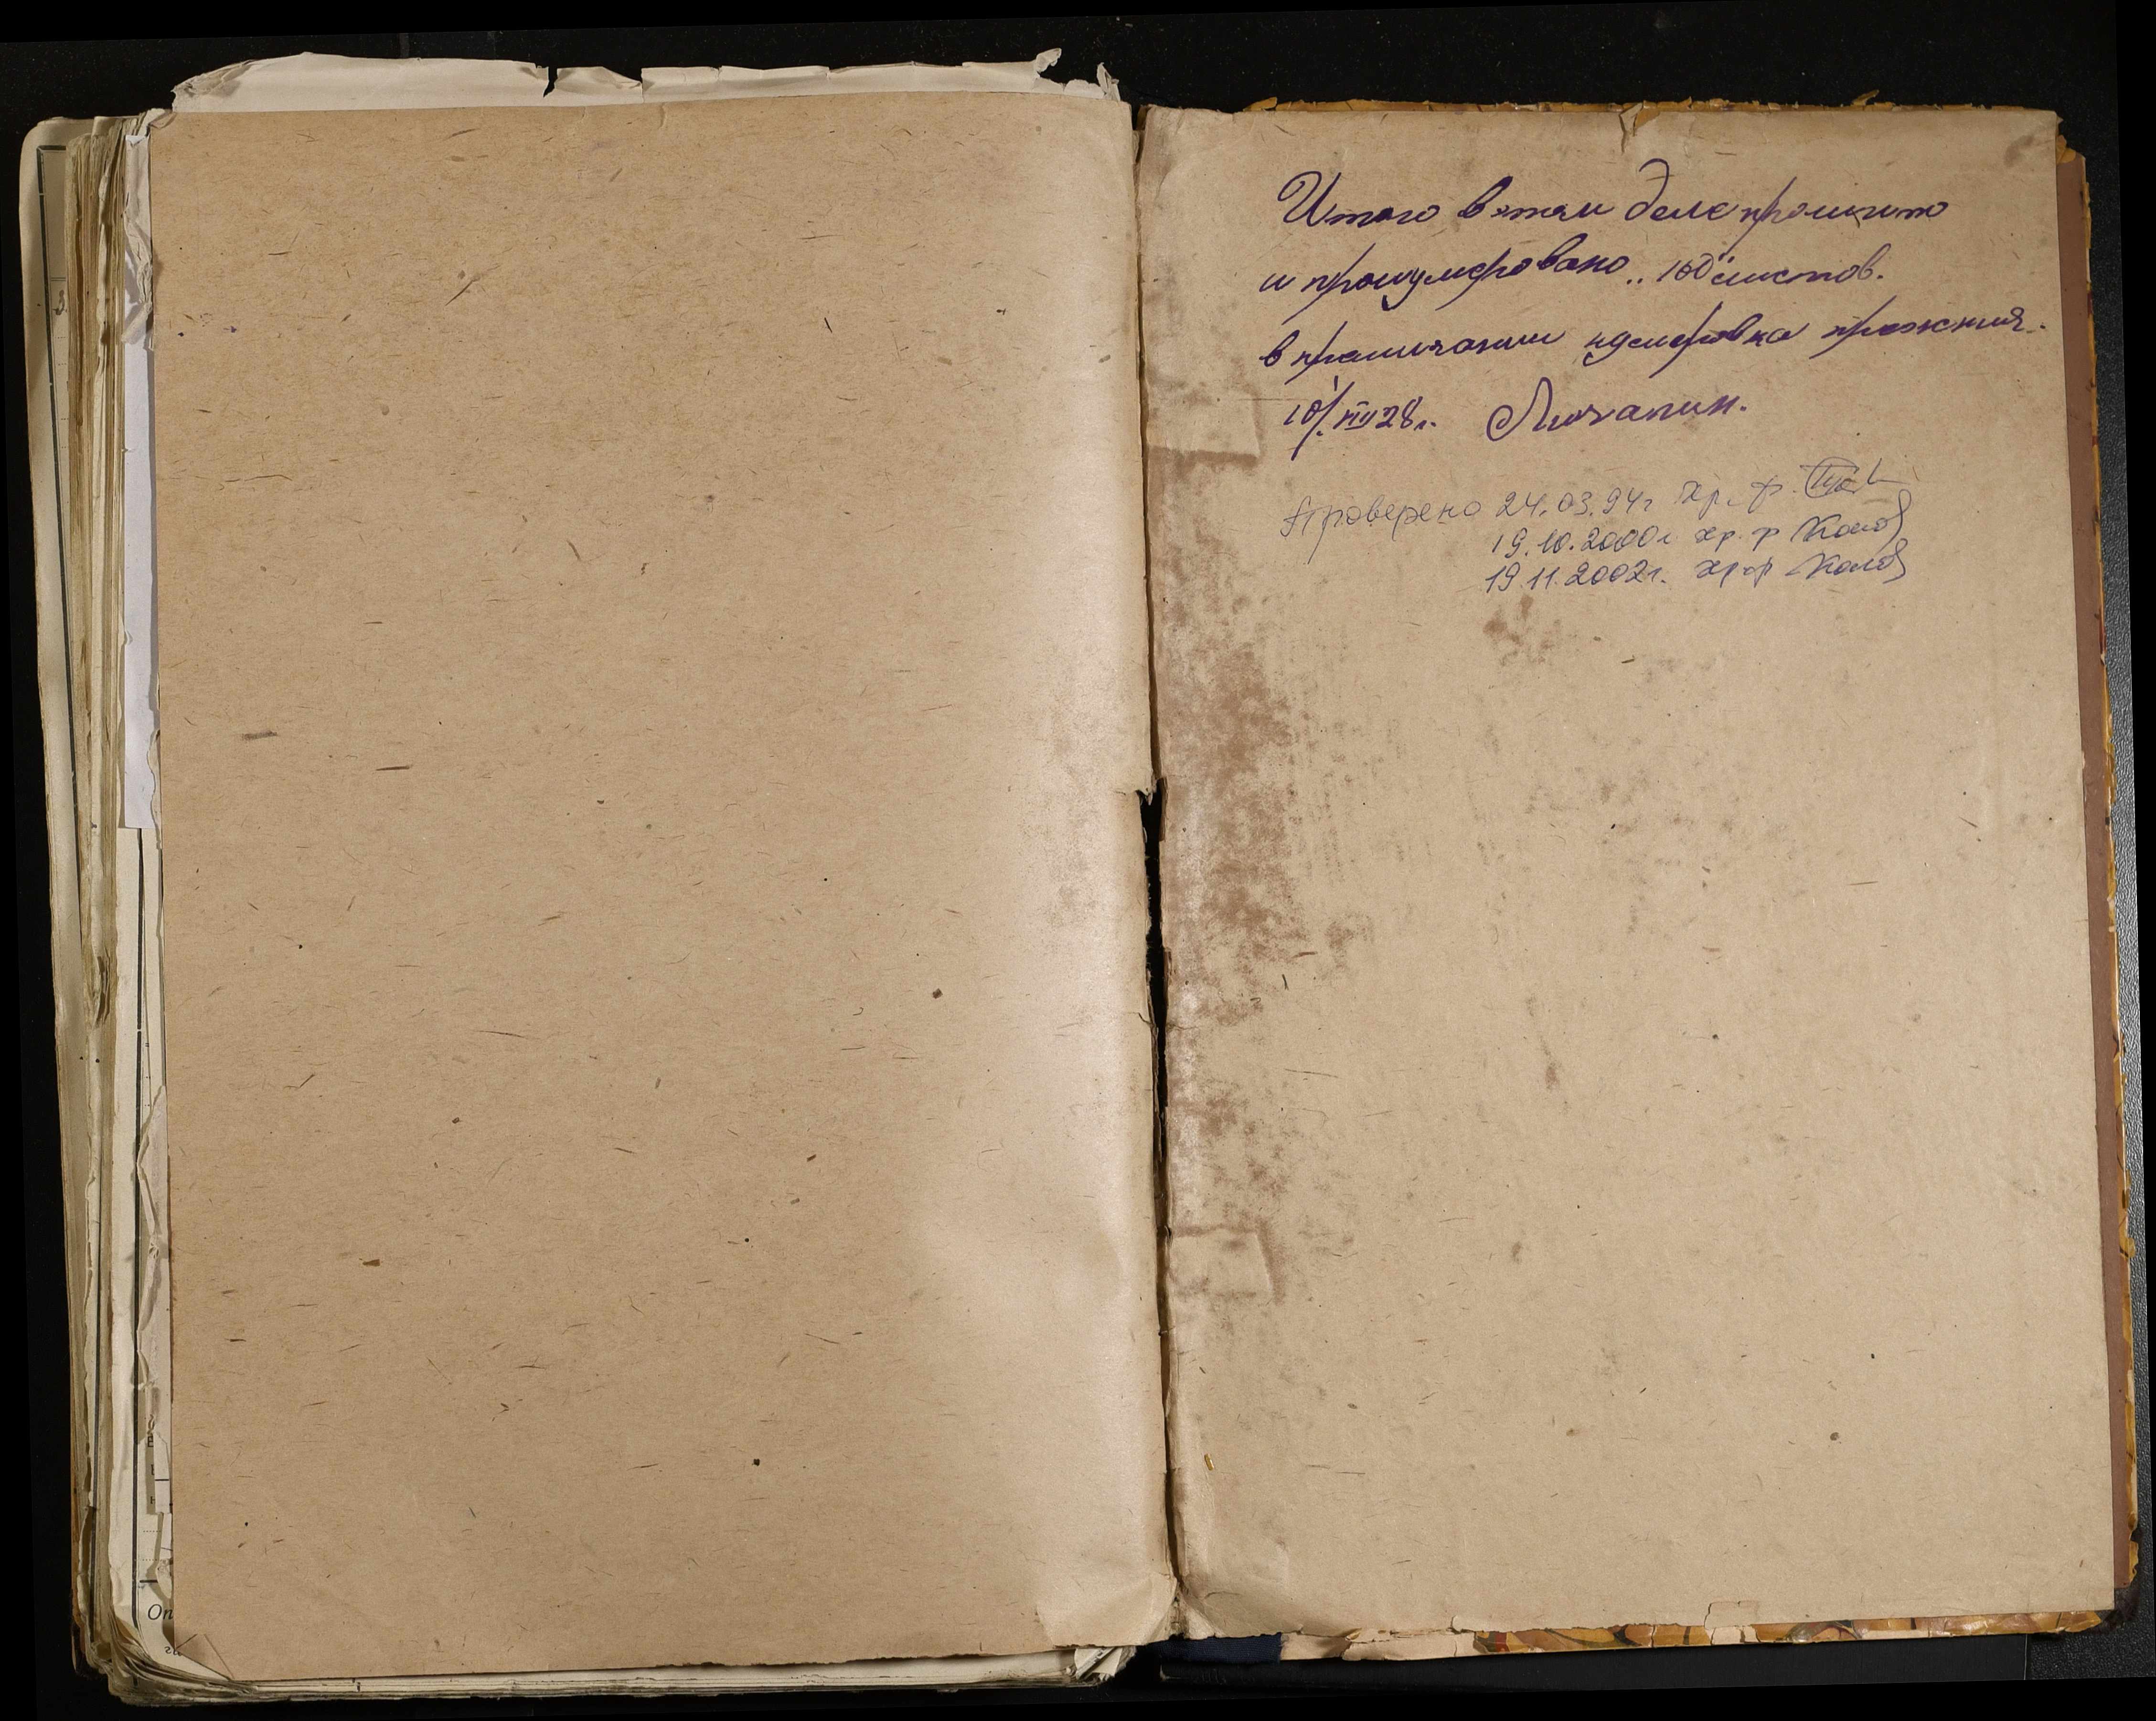 Итого в этом деле прошито
и пронумеровано „160“ листов.
в примечании нумеровка прежняя.
10/VIII 28 г. Лючапин.
Проверено 24.03.94г хр. ф.
19.10.2000г хр. ф
19.11.2002г. хр. ф
Оп